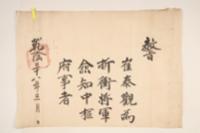 崔泰觀爲
折衝將軍
僉知中樞
府事者
乾隆
八年
月
日